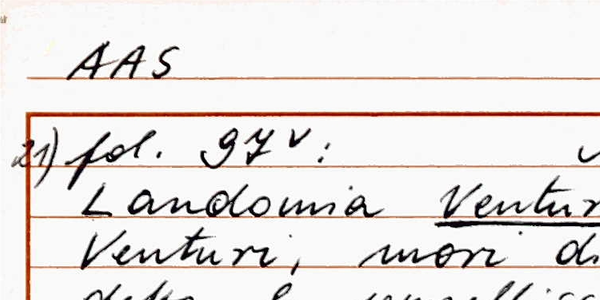 AAS
21) fol. 97v:
Landomia Ventur
Venturi, morì di